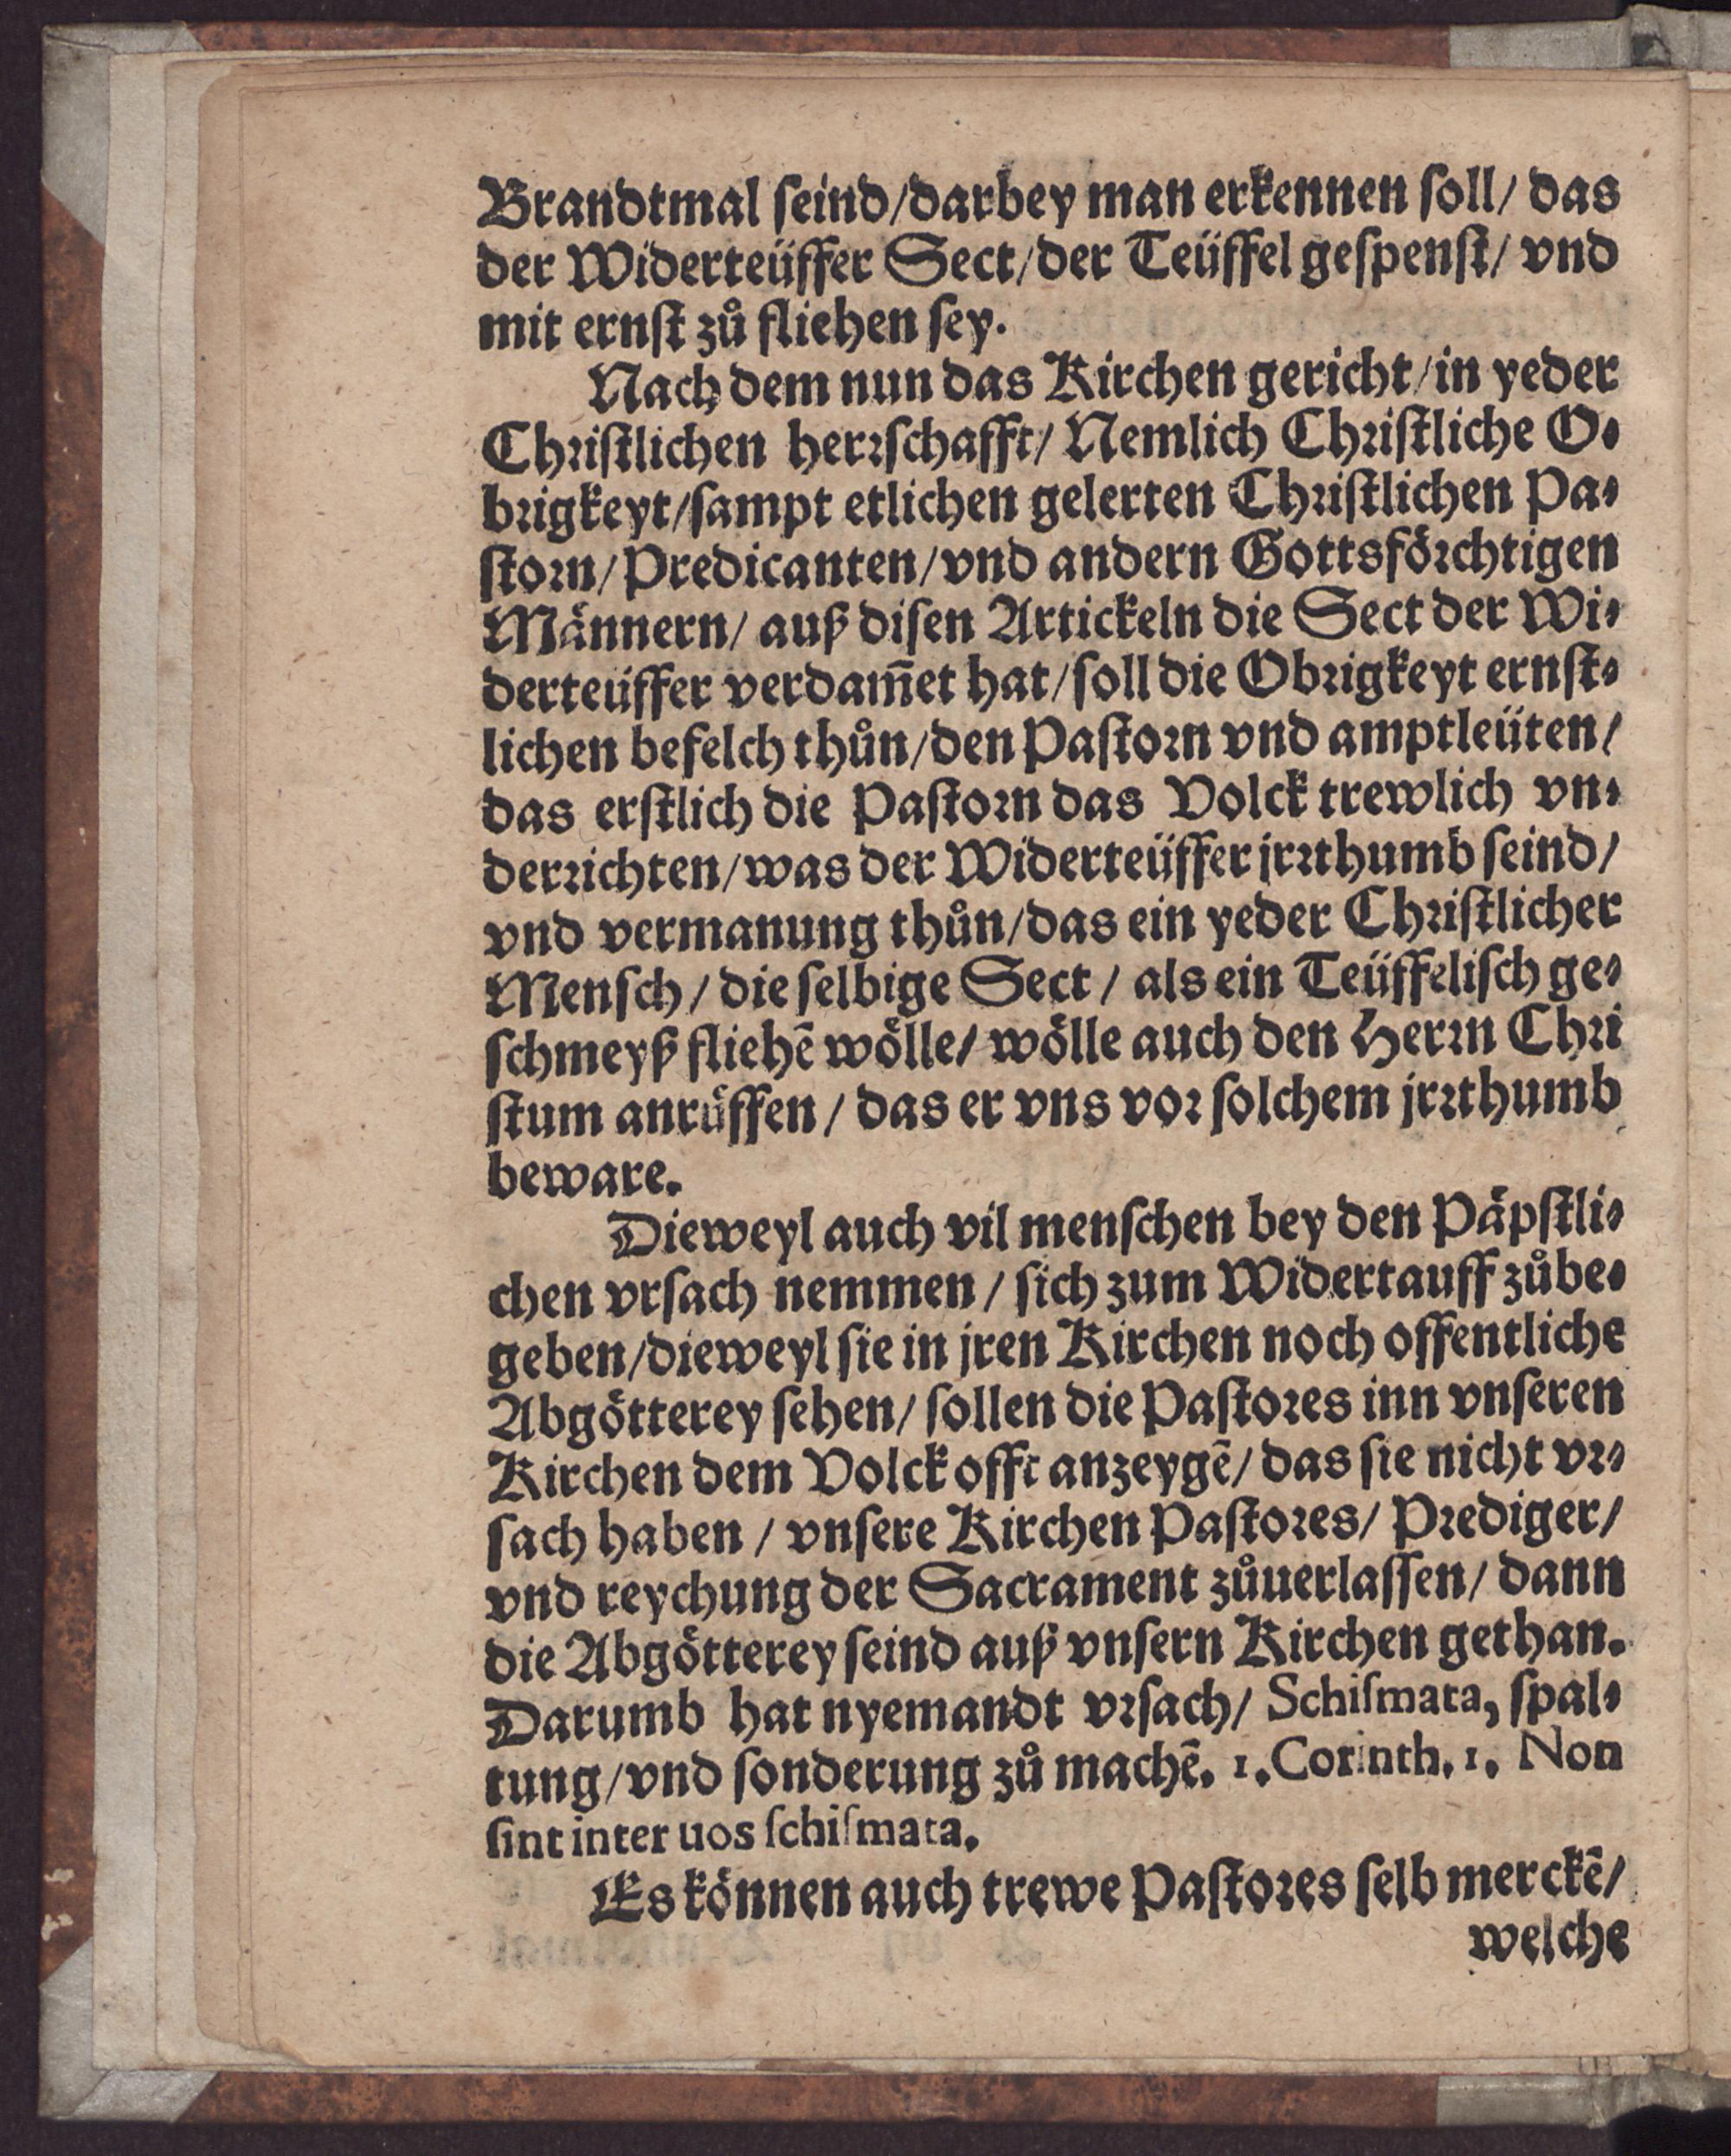 Brandtmal ſeind/darbey man erkennen ſoll/ das
der Widerteüffer Sect/der Teüffel geſpenſt/ vnd
mit ernſt zů fliehen ſey.
Nach dem nun das Kirchen gericht/in yeder
Chꝛiſtlichen herꝛſchafft/ Nemlich Chꝛiſtliche O⸗
bꝛigkeyt/ſampt etlichen gelerten Chꝛiſtlichen Pa⸗
ſtoꝛn/Predicanten/vnd andern Gottsföꝛchtigen
Männern/ auß diſen Artickeln die Sect der Wi⸗
derteüffer verdam̄et hat/ſoll die Obꝛigkeyt ernſt⸗
lichen befelch thůn/den Paſtoꝛn vnd amptleüten/
das erſtlich die Paſtoꝛn das Volck trewlich vn⸗
derꝛichten/was der Widerteüffer jrꝛthumb ſeind/
vnd vermanung thůn/das ein yeder Chꝛiſtlicher
Menſch/ die ſelbige Sect/ als ein Teüffeliſch ge⸗
ſchmeyß fliehē wölle/ wölle auch den Herꝛn Chꝛi
ſtum anrüffen/ das er vns voꝛ ſolchem jrꝛthumb
beware.
Dieweyl auch vil menſchen bey den Päpſtli⸗
chen vrſach nemmen/ ſich zum Widertauff zůbe⸗
geben/dieweyl ſie in jren Kirchen noch offentliche
Abgötterey ſehen/ ſollen die Paſtoꝛes inn vnſeren
Kirchen dem Volck offt anzeygē/ das ſie nicht vꝛ⸗
ſach haben/ vnſere Kirchen Paſtoꝛes/ Pꝛediger/
vnd reychung der Sacrament zůuerlaſſen/ dann
die Abgötterey ſeind auß vnſern Kirchen gethan.
Darumb hat nyemandt vꝛſach/ Schiſmata, ſpal⸗
tung/vnd ſonderung zů machē. 1. Corinth. 1. Non
ſint inter uos ſchiſmata.
Es können auch trewe Paſtoꝛes ſelb merckē/
welche